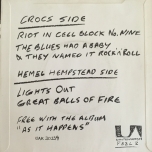 CROCS SIDE
RIOT IN CELL BLOCK NO. NINE
THE BLUES HAD A BABY
& THEY NAMED IT ROCK'N'ROLL
HEMEL HEMPSTEAD SIDE
LIGHTS OUT
GREAT BALLS OF FIRE
FREE WITH THE ALBUM
"AS IT HAPPENS"
UAK 30239
FREE 2